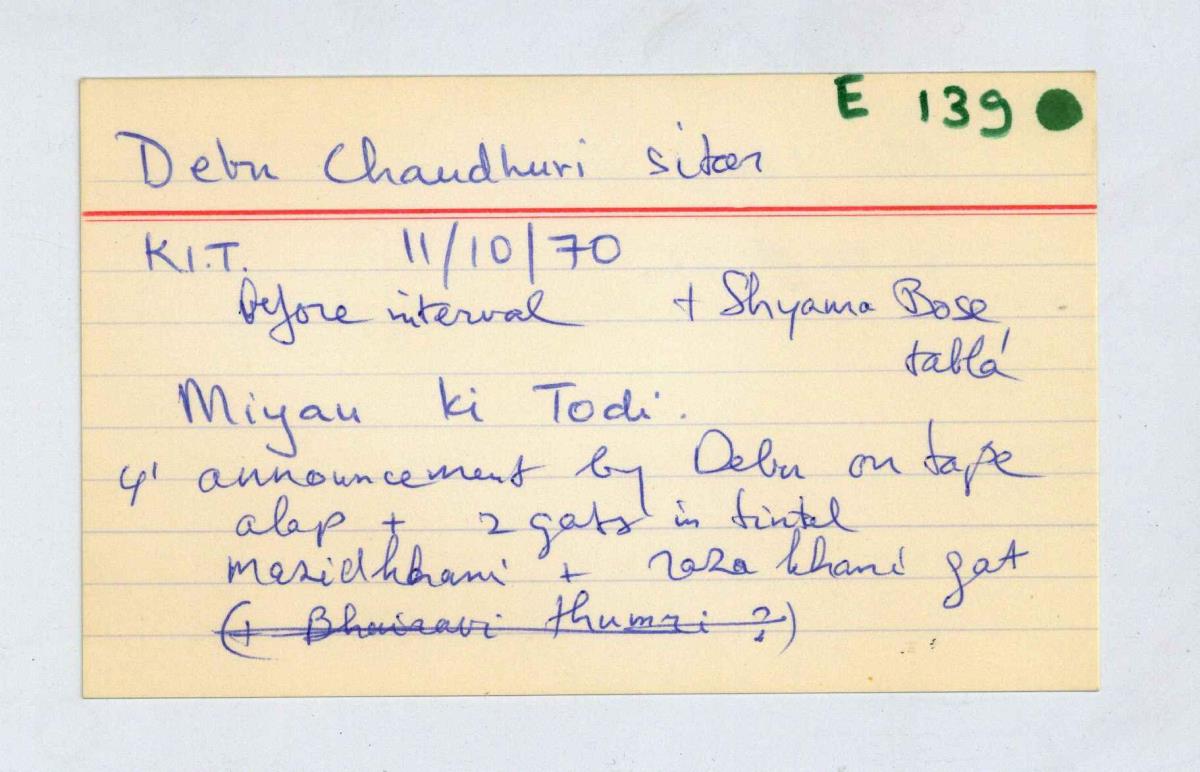 E 139
Debu Chaudhuri sitar
K.I.T. 11/10/70
before interval + Shyama Bose
tablá
Miyan ki Todi.
4' announcement by Debu on tape
alap + 2 gats in tintal
masidkhani + raza khani gat
(+ Bhairavi thumri ?)